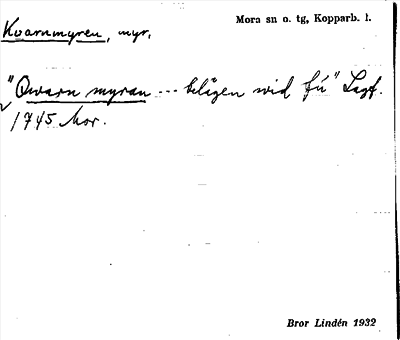 Mora sn o. tg, Kopparb. l.
Kvarnmyren, myr.
"Qwarn myran --- belägen wid fú" Lagf.
1745 Mor.
Bror Lindén 1932